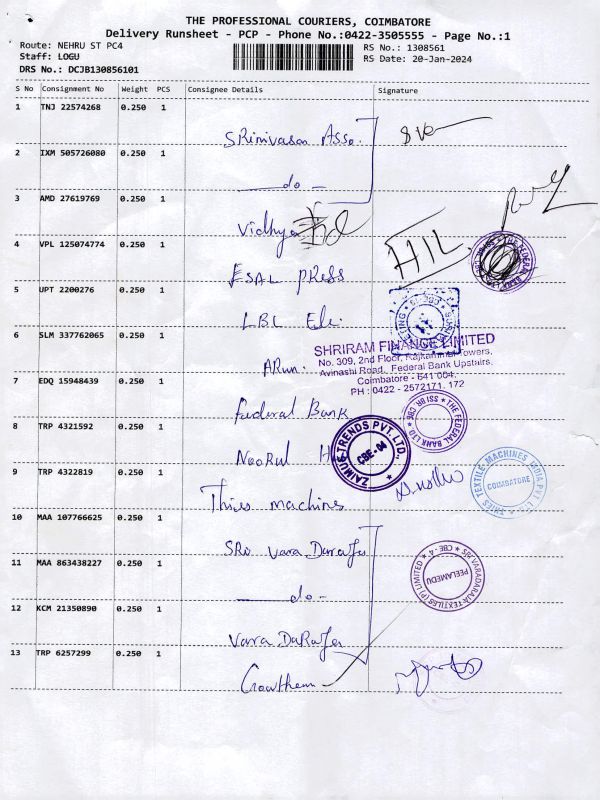 THE PROFESSIONAL COURIERS, COIMBATORE
Delivery Runsheet - PCP - Phone No.:0422-3505555 - Page No.:1
Route: NEHRU ST PC4
RS No.: 1308561
Staff: LOGU
RS Date: 20-Jan-2024
DRS No.: DCJB130856101
S No Consignment No Weight PCS Consignee Details Signature
1 TNJ 22574268 0.250 1
Srinivasan Asso.
2 IXM 505726080 0.250 1
do
3 AMD 27619769 0.250 1
Vidhya
4 VPL 125074774 0.250 1
HIL
ESAL press
5 UPT 2200276 0.250 1
LBL Ele.
6 SLM 337762065 0.250 1
SHRIRAM FINANCE LIMITED
No. 309, 2nd Floor, Rajkammal Towers,
Avinashi Road, Federal Bank Upstairs,
Coimbatore - 641 004.
PH : 0422 - 2572171, 172
ARun.
7 EDQ 15948439 0.250 1
Federal Bank
THE FEDERAL BANK LTD. SSI BR. CBE
8 TRP 4321592 0.250 1
NeoRul H
TRENDS PVT. LTD. CBE-04
9 TRP 4322819 0.250 1
Thies machines
THIES TEXTILE MACHINES INDIA PVT LTD COIMBATORE
10 MAA 107766625 0.250 1
SRi Vara Daraja
11 MAA 863438227 0.250 1
do
VARADARAJA TEXTILES (P) LIMITED CBE - 4 PEELAMEDU
12 KCM 21350890 0.250 1
Vara DaRaja
13 TRP 6257299 0.250 1
Gowtham